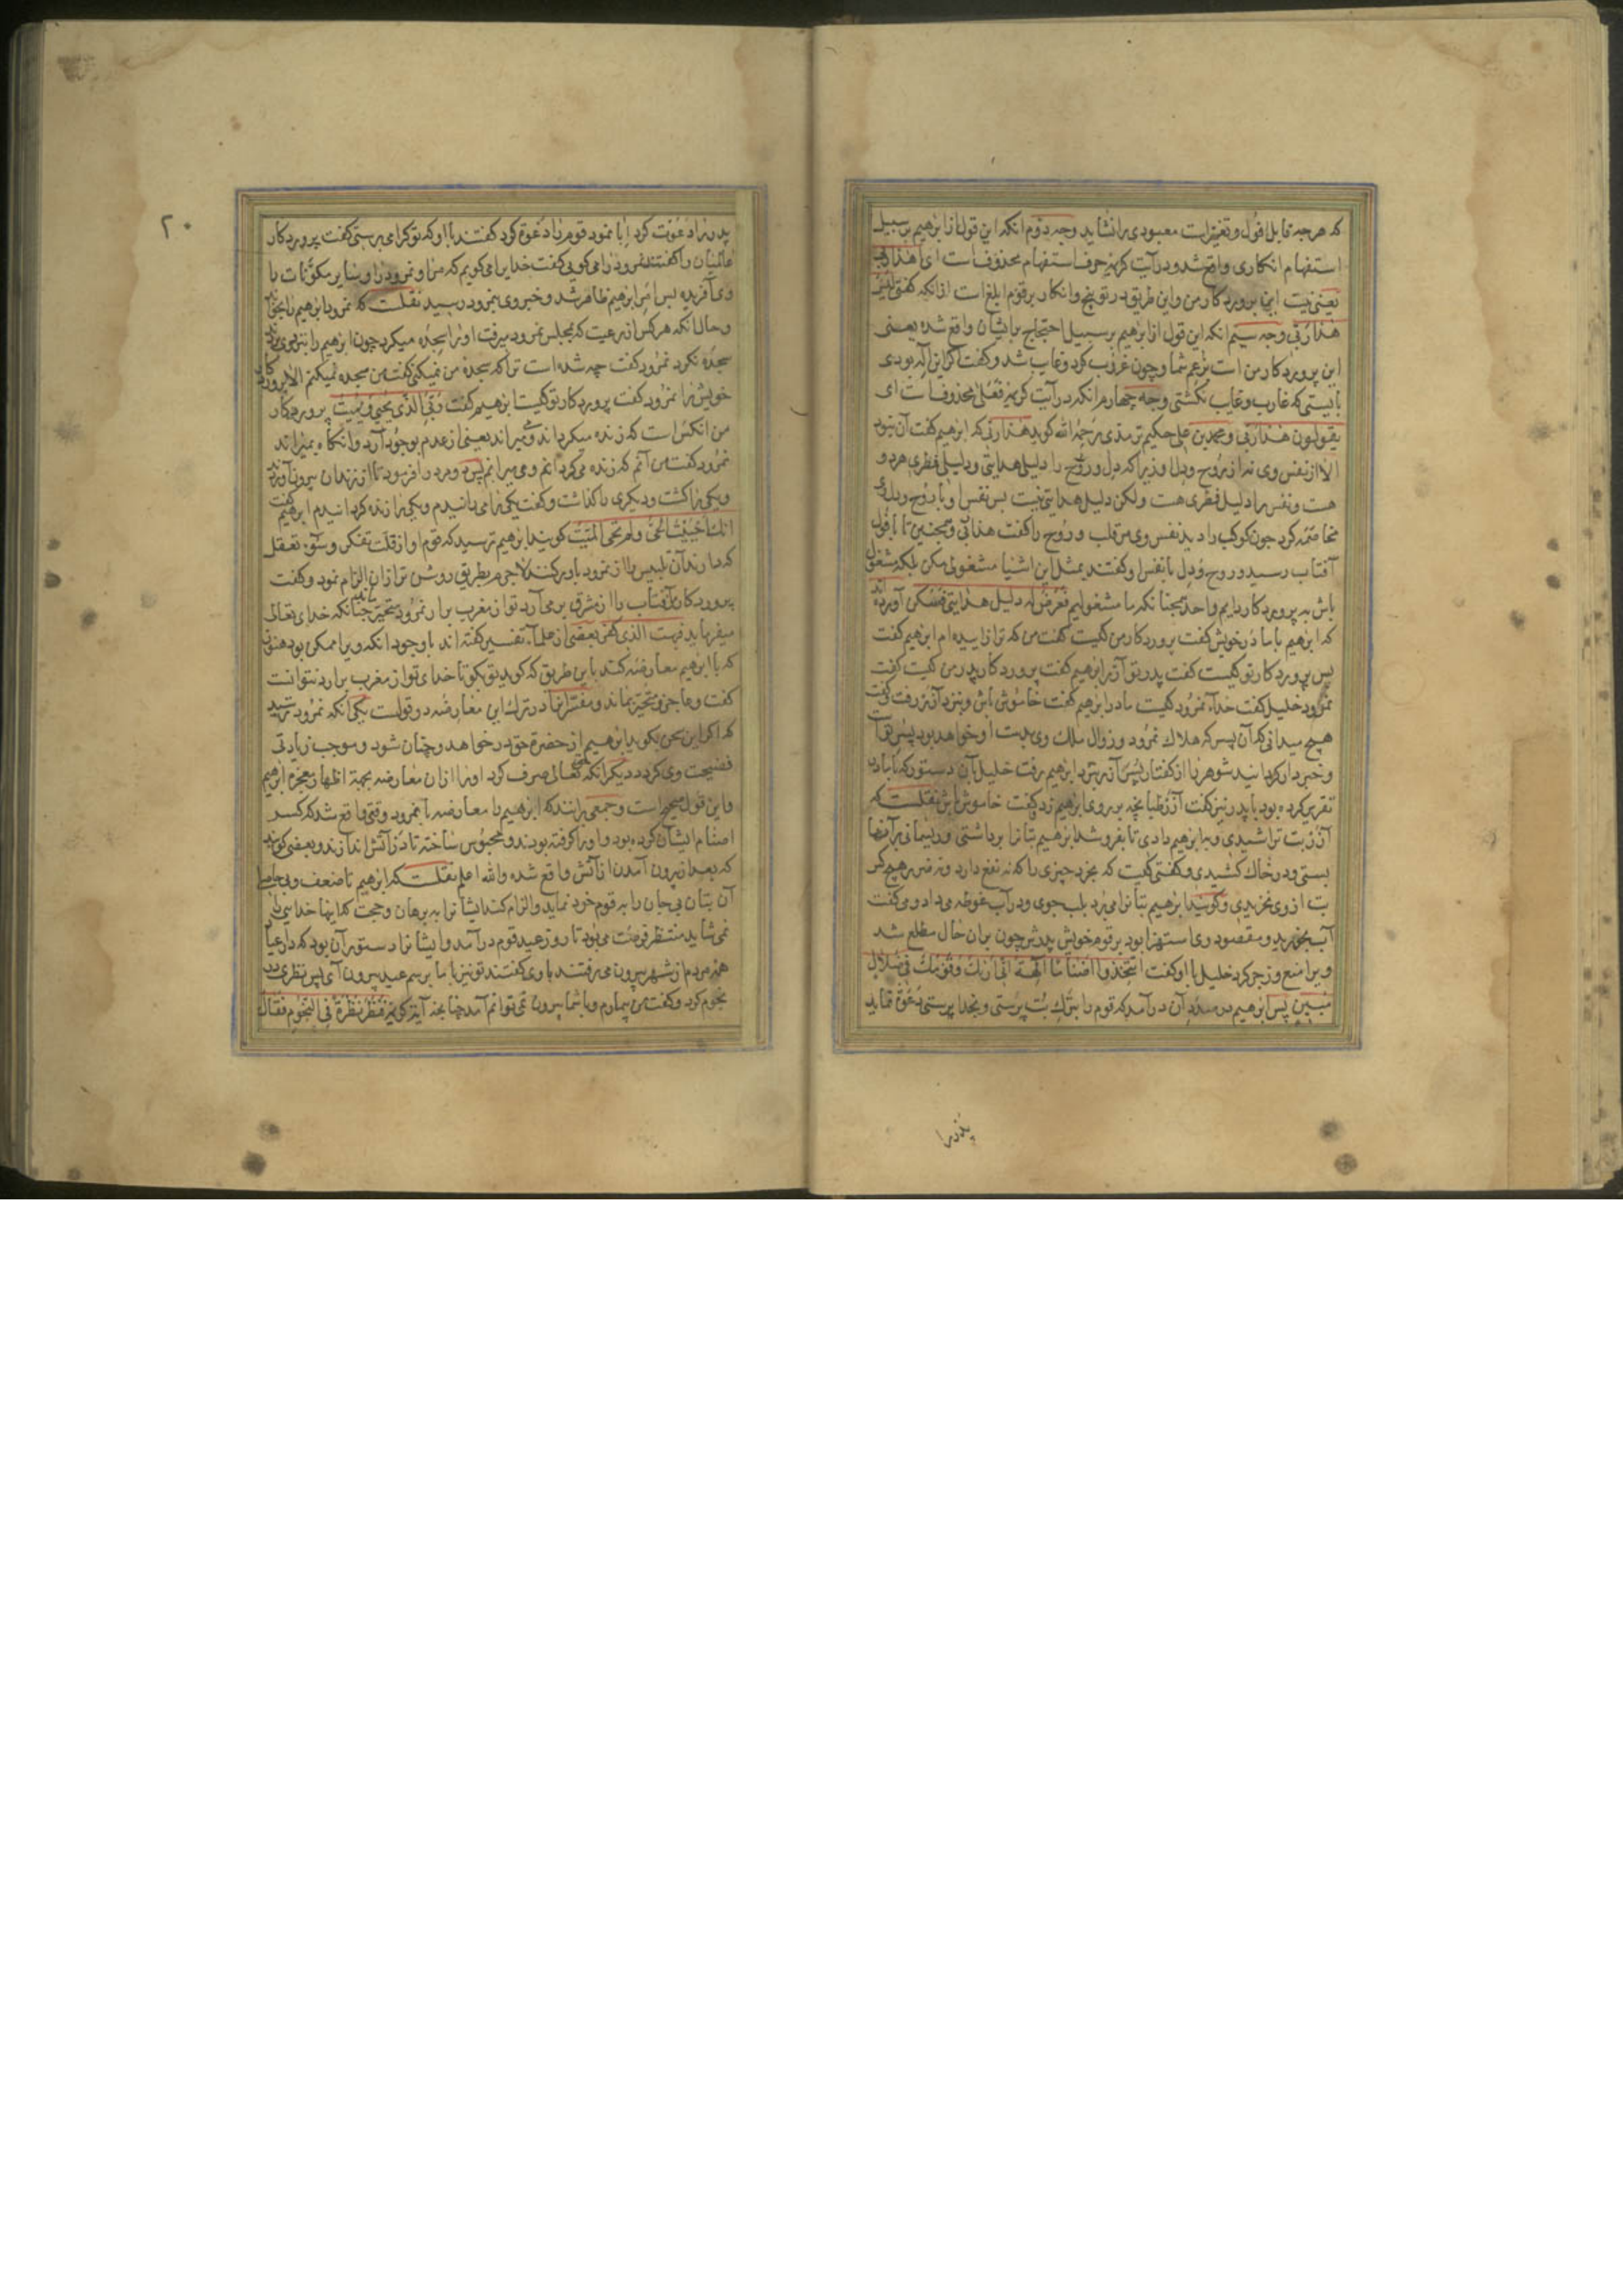 که هرچه قابل افول و تغیر است معبودی را نشاید وجه دوم انکه این قول از ابرهیم بر سبیل
استفهام انکاری واقع شد و در آیت کریمه حرف استفهام محذوفست ای اهذا ربی
یعنی نیست این پروردکار من و این طریق در توبیخ و انکار بر قوم ابلغ است از انکه کفتی لیس
هذا ربی وجه سیم انکه این قول از ابرهیم بر سبیل احتجاج بر ایشان واقع شده یعنی
این پروردکار من است بزعم شما و چون غروب کرد و غایب شد و کفت اکر این اله بودی
بایستی که غارب و غایب نکشتی وجه چهارم انکه در آیت کریمه فعلی محذوفست ای
یقولون هذا ربی و محمد بن علی حکیم ترمذی رحمه الله کوید هذا ربی که ابرهیم کفت آن نبود
الا از نفس وی نه از روح و دل او زیرا که دل و روح را دلیل هدایتی و دلیل فطری هر دو
هست و نفس را دلیل فطری هست ولکن دلیل هدایتی نیست پس نفس او با روح و دل وی
مخاصمه کرد چون کوکب را دید نفس وی مر قلب و روح را کفت هذا ربی و همچنین تا بافول
آفتاب رسید و روح و دل با نفس او کفتند بمثل این اشیا مشغولی مکن بلکه مشغول
باش به پروردکار دایم واحد همچنانکه ما مشغولیم فعرض له دلیل هدایتی فسکن آورده اند
که ابرهیم با مادر خویش کفت پروردکار من کیست کفت من که ترا زاییده ام ابرهیم کفت
پس پروردکار تو کیست کفت پدر تو آزر ابرهیم کفت پروردکار پدر من کیست کفت
نمرود خلیل کفت خداء نمرود کیست مادر ابرهیم کفت خاموش باش و بنزد آزر رفت و کفت
هیچ میدانی که آن پسر که هلاک نمرود و زوال ملک وی بدست او خواهد بود پسر تو است
و خبردار کردانید شوهر را از کفتار پسر آزر بنزد ابرهیم رفت خلیل بآن دستور که با مادر
تقریر کرده بود با پدر نیز کفت آزر طپانچه بر روی ابرهیم زد و کفت خاموش باش نقلست که
آزر بت تراشیدی و به ابرهیم دادی تا بفروشد ابرهیم بتانرا برداشتی و ریسمانی بر آنها
بستی و در خاک کشیدی و کفتی کیست که بخرد چیزی را که نه نفع دارد و نه ضرر هیچ کس
بت از وی نخریدی و کویند ابرهیم بتانرا می برد بلب جوی و در آب غوطه می داد و می کفت
آب بخورید و مقصود وی استهزا بود بر قوم خویش پدرش چون بران حال مطلع شد
ویرا منع و زجر کرد خلیل با او کفت اتتخذ اصناما الهة انی اریک و قومک فی ضلال
مبین پس ابرهیم در صدد آن در آمد که قوم را بترک بت پرستی و بخدا پرستی دعوة نماید
پدر را
۲۰
پدر را دعوت کرد ابا نمود قوم را دعوة کرد کفتند با او که تو کرا می پرستی کفت پروردکار
عالمیان را کفتند نمرود را می کویی کفت خدایرا می کویم که مرا و نمرود را و سایر مکونات را
وی آفریده پس امر ابرهیم ظاهر شد و خبر وی بنمرود رسید نقلست که نمرود ابرهیم را بخواند
و حال انکه هر کس از رعیت که بمجلس نمرود میرفت او را سجده میکرد چون ابرهیم را بنزد وی بردند
سجده نکرد نمرود کفت چه شده است ترا که سجده من نمیکنی کفت من سجده نمیکنم الا پروردکار
خویش را نمرود کفت پروردکار تو کیست ابرهیم کفت ربی الذی یحیی و یمیت پروردکار
من انکس است که زنده میکرداند و میمیراند یعنی از عدم بوجود آرد و انکاه بمیراند
نمرود کفت من آنم که زنده می کردانم و می میرانم پس دو مرد را فرمود تا از زندان بیرون آوردند
و یکی را کشت و دیکری را کذاشت و کفت یکی را میرانیدم و یکی را زنده کردانیدم ابرهیم کفت
انک احییت الحی و لم تحی المیت کویند ابرهیم ترسید که قوم او از قلت تفکر و سوء تعقل
که دارند آن تلبیس را از نمرود باور کنند لاجرم بطریق روشن تر ازان الزام نمود و کفت
پروردکار من آفتاب را از مشرق بر می آرد تو از مغرب برار نمرود متحیر بماند چنانکه خدای تعالی
میفرماید فبهت الذی کفر بعضی از علماء تفسیر کفته اند با وجود انکه ویرا ممکن بود هنوز
که با ابرهیم معارضه کند باین طریق که کوید تو بکو تا خدای تو از مغرب برارد نتوانست
کفت و عاجز و متحیر بماند و مفسرانرا در ترک این معارضه دو قولست یکی انکه نمرود ترسید
که اکر این سخن بکوید ابرهیم از حضرة حق در خواهد و چنان شود و موجب زیادتی
فضیحت وی کردد دیکر انکه حق تعالی صرف کرد او را ازان معارضه بجهة اظهار معجزه ابرهیم
و این قول صحیح است و جمعی برانند که ابرهیم را معارضه با نمرود وقتی واقع شد که کسر
اصنام ایشان کرده بود و او را کرفته بودند و محبوس ساخته تا در آتش اندازند و بعضی کویند
که بعد از بیرون آمدن از آتش واقع شده والله اعلم نقلست که ابرهیم تا ضعف و بی حاصلی
آن بتان بی جان را به قوم خود نماید و الزام کند ایشانرا به برهان و حجت که اینها خدایی را
نمی شاید منتظر فرصت می بود تا روز عید قوم در آمد و ایشانرا دستور آن بود که در عید
همه مردم از شهر بیرون می رفتند با وی کفتند تو نیز با ما برسم عید بیرون آی پس نظری در
نجوم کرد و کفت من بیمارم و با شما بیرون نمی توانم آمد چنانچه آیة کریمه فنظر نظرة فی النجوم فقال